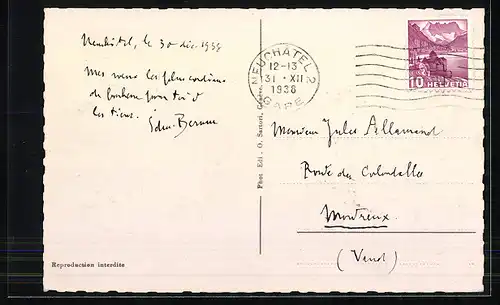 Neuchâtel, le 30 déc. 1938
Mes vœux les plus cordiaux
de bonheur pour toi &
les tiens.
NEUCHATEL 2
12-13
31. XII
1938
GARE
10 HELVETIA
Monsieur Jules Allamand
Route des Colondalles
Montreux
(Vaud)
Phot. Edit. O. Sartori, Genève
Reproduction interdite